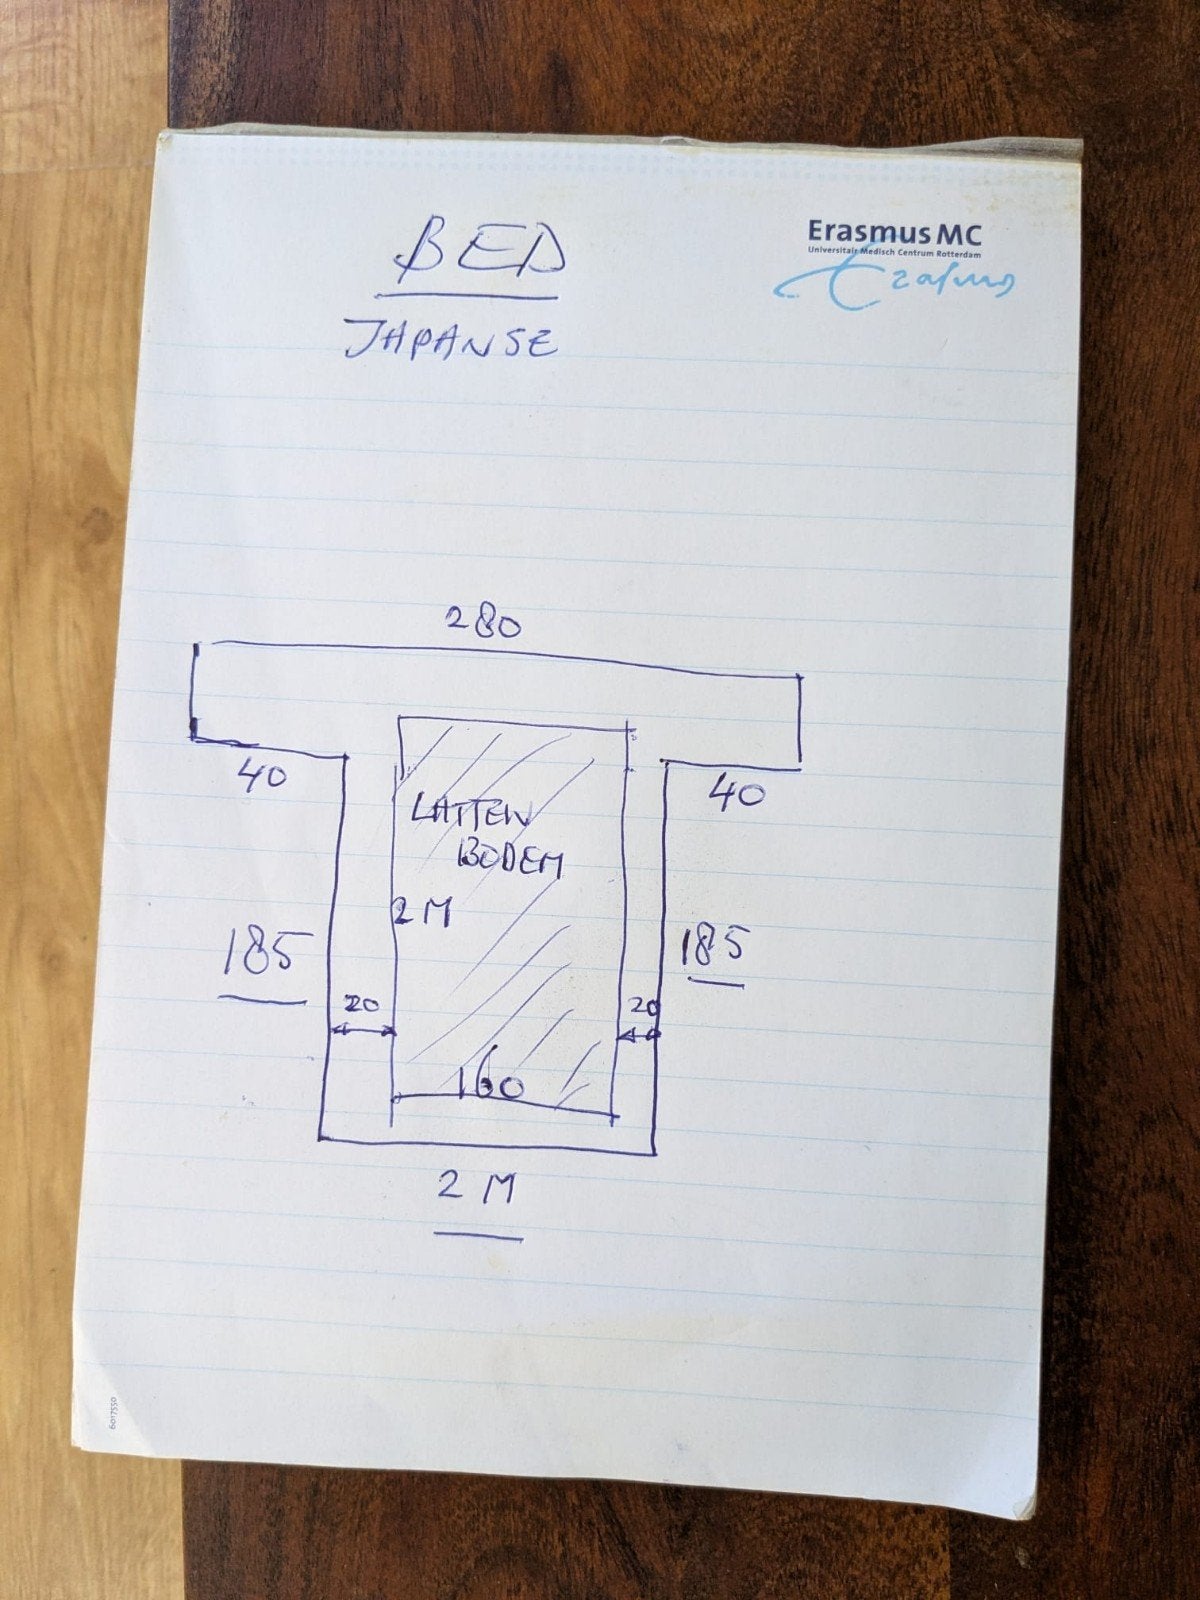 BED
JAPANSE
Erasmus MC
Universitair Medisch Centrum Rotterdam
Erasmus
280
40
40
LATTEN
BODEM
2 M
185
185
20
20
160
2 M
6017550